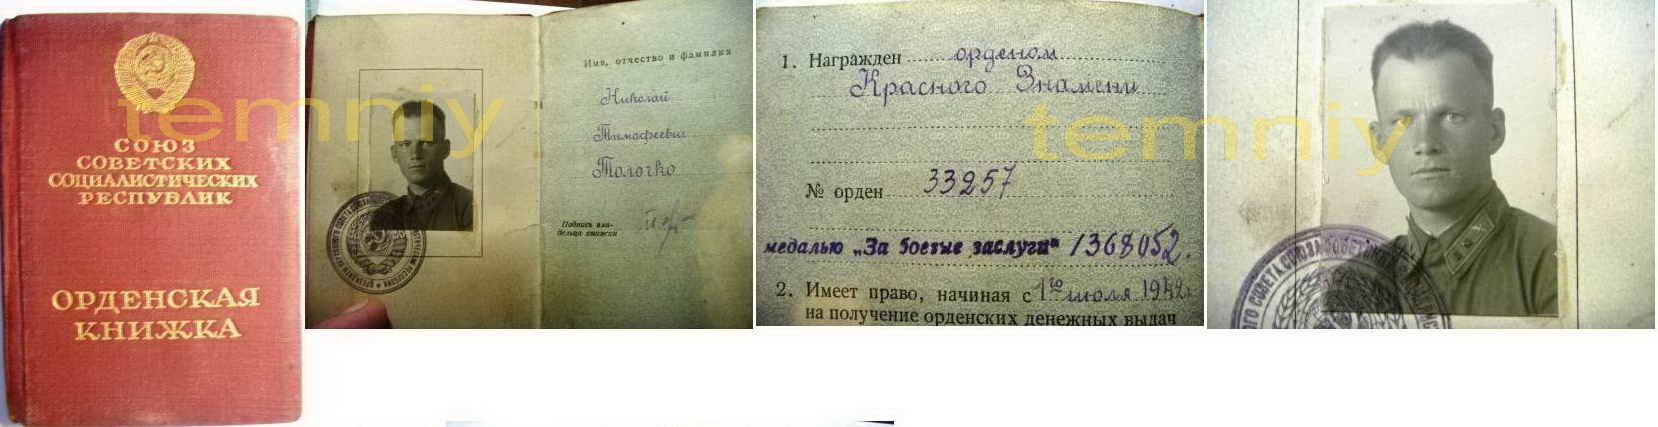 СОЮЗ
СОВЕТСКИХ
СОЦИАЛИСТИЧЕСКИХ
РЕСПУБЛИК
ОРДЕНСКАЯ
КНИЖКА
temniy
Имя, отчество и фамилия
Николай
Тимофеевич
Толочко
Подпись вла-
дельца книжки
1. Награжден орденом
Красного Знамени
№ орден 33257
медалью „За боевые заслуги" 1368052.
2. Имеет право, начиная с 1го июля 1942г
на получение орденских денежных выдач
temniy